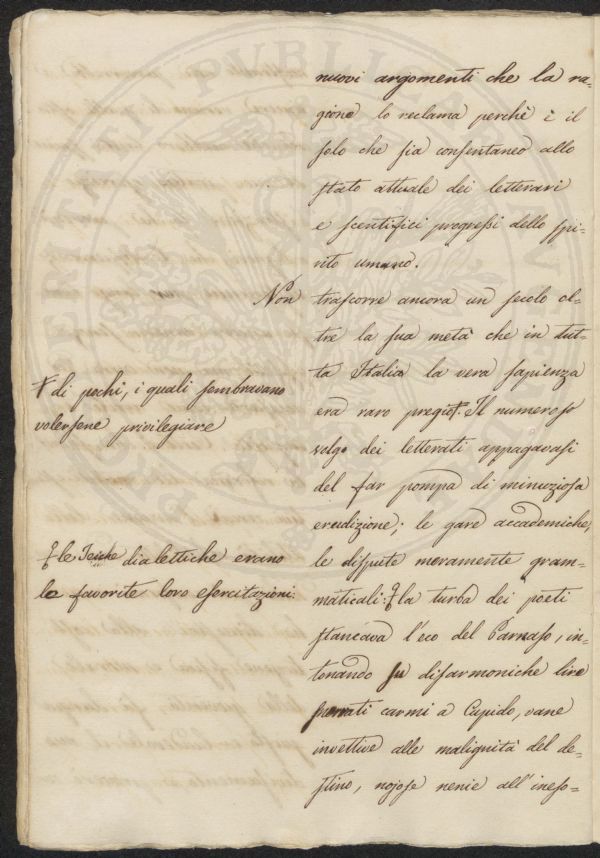 nuovi argomenti che la ra-
gione lo reclama perchè è il
solo che sia consentaneo allo
stato attuale dei letterari
e scentifici progressi dello spi-
rito umano.
Non trascorre ancora un secolo ol-
tre la sua metà che in tut-
ta Italia la vera sapienza
era raro pregio Ŧ. Il numeroso
volgo dei letterati appagavasi
del far pompa di minuziosa
erudizione; le gare accademiche,
le dispute meramente gram-
maticali: ꝗ la turba dei poeti
stancava l'eco del Parnaso, in-
tonando su disarmoniche lire
carmi a Cupido, vane
invettive alle malignità del de-
stino, nojose nenie all'ineso-
Ŧ di pochi, i quali sembravano
volersene privilegiare
ꝗ le dialettiche erano
le favorite loro esercitazioni: